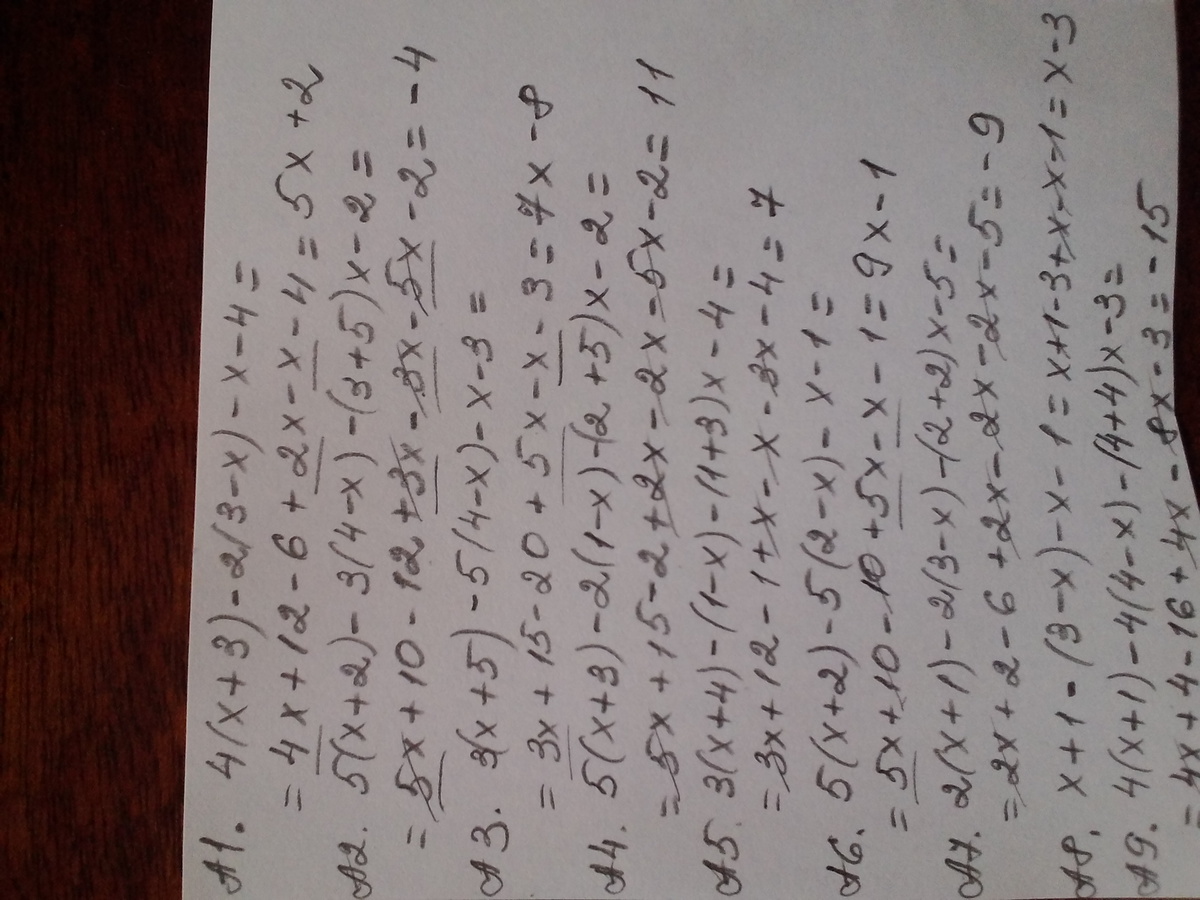 A1. 4(x+3)-2(3-x)-x-4=
=4x+12-6+2x-x-4=5x+2
A2. 5(x+2)-3(4-x)-(3+5)x-2=
=5x+10-12+3x-3x-5x-2=-4
A3. 3(x+5)-5(4-x)-x-3=
=3x+15-20+5x-x-3=7x-8
A4. 5(x+3)-2(1-x)-(2+5)x-2=
=5x+15-2+2x-2x-5x-2=11
A5. 3(x+4)-(1-x)-(1+3)x-4=
=3x+12-1+x-x-3x-4=7
A6. 5(x+2)-5(2-x)-x-1=
=5x+10-10+5x-x-1=9x-1
A7. 2(x+1)-2(3-x)-(2+2)x-5=
=2x+2-6+2x-2x-2x-5=-9
A8. x+1-(3-x)-x-1=x+1-3+x-x-1=x-3
A9. 4(x+1)-4(4-x)-(4+4)x-3=
=4x+4-16+4x-8x-3=-15